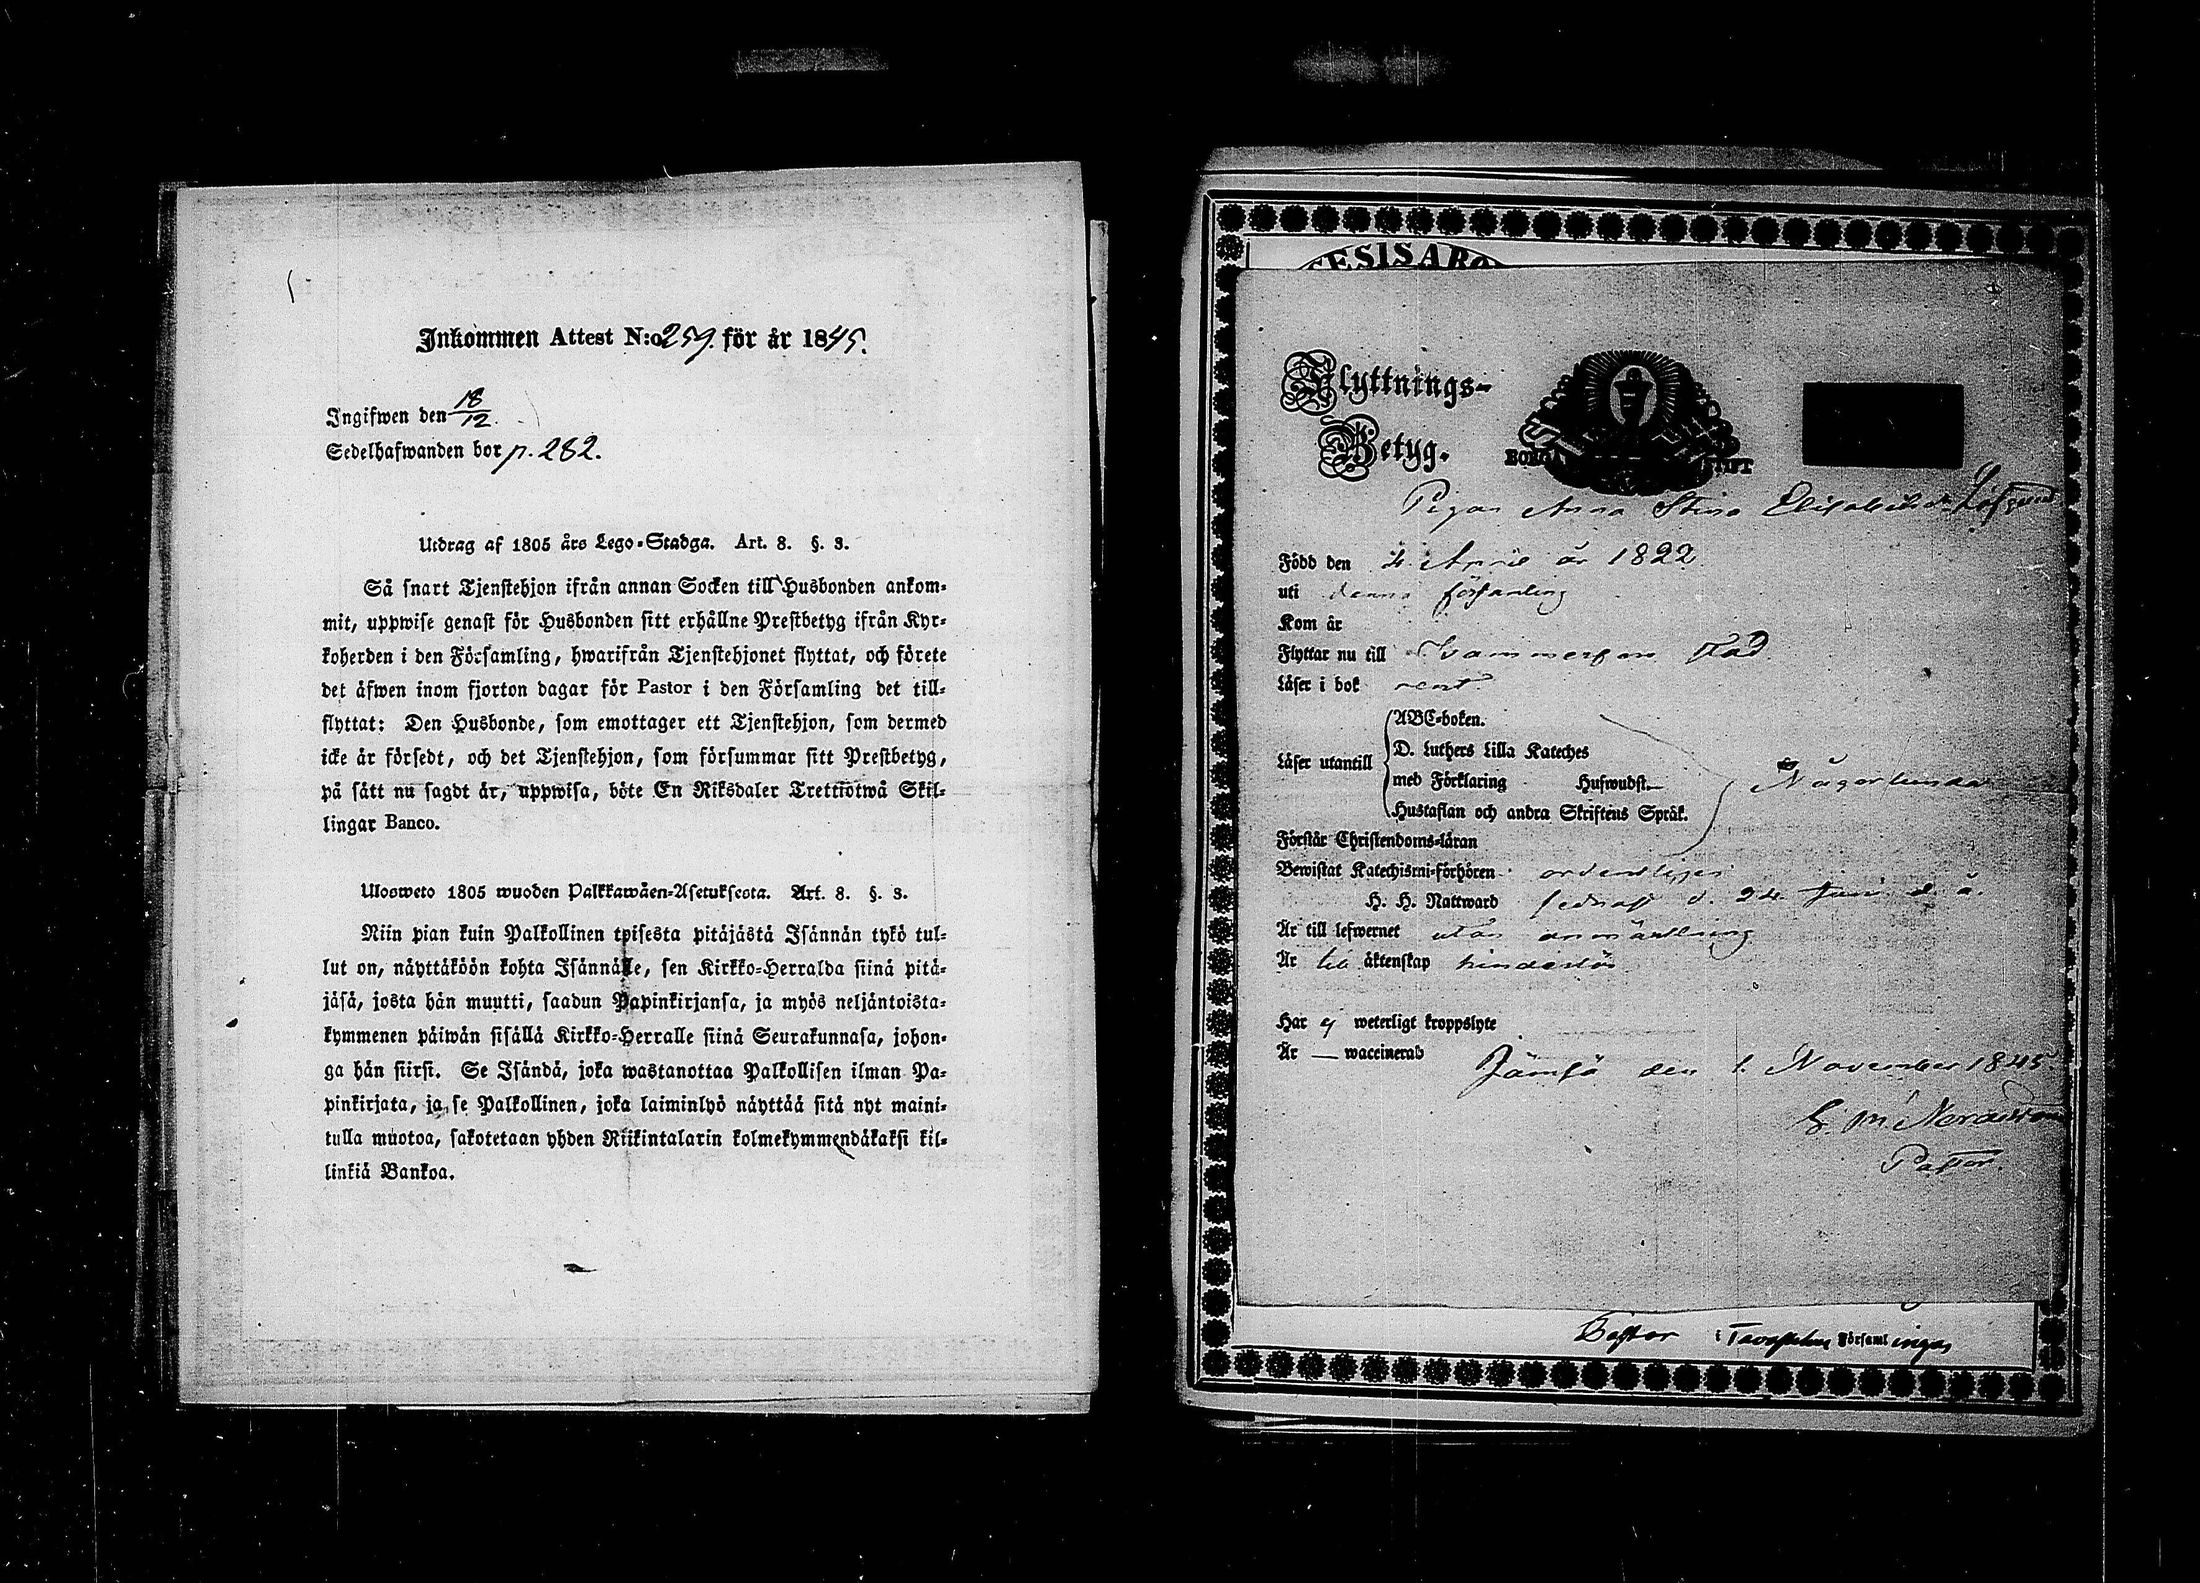 Inkommen Attest N:o 259. för år 1845.
Ingifwen den 18/12.
Sedelhafwanden bor p. 282.
Utdrag af 1805 års Lego-Stadga. Art. 8. §. 3.
Så snart Tjenstehjon ifrån annan Socken till Husbonden ankom-
mit, uppwise genast för Husbonden sitt erhållne Prestbetyg ifrån Kyr-
koherden i den Församling, hwarifrån Tjenstehjonet flyttat, och förete
det äfwen inom fjorton dagar för Pastor i den Församling det till-
flyttat: Den Husbonde, som emottager ett Tjenstehjon, som dermed
icke är försedt, och det Tjenstehjon, som försummar sitt Prestbetyg,
på sätt nu sagdt är, uppwisa, böte En Riksdaler Trettiotwå Skil-
lingar Banco.
Ulosweto 1805 wuoden Palkkawäen-Asetuksesta. Art. 8. §. 3.
Niin pian kuin Palkollinen toisesta pitäjästä Isännän tykö tul-
lut on, näyttäköön kohta Isännälle, sen Kirkko-Herralda siinä pitä-
jäsä, josta hän muutti, saadun Papinkirjansa, ja myös neljäntoista-
kymmenen päiwän sisällä Kirkko-Herralle siinä Seurakunnasa, johon-
ga hän siirsi. Se Isändä, joka wastanottaa Palkollisen ilman Pa-
pinkirjata, ja se Palkollinen, joka laiminlyö näyttää sitä nyt maini-
tulla muotoa, sakotetaan yhden Riikintalarin kolmekymmendäkaksi kil-
linkiä Bankoa.
ESIS ABO
Flyttnings-
Betyg.
Pigan Anna Stina Elisabetsdr
Född den 4 April år 1822
uti denna församling
Kom år
Flyttar nu till Tammerfors stad
Läser i bok rent
Läser utantill
ABC-boken.
D. Luthers Lilla Kateches
med Förklaring Hufwudst.
Hustaflan och andra Skriftens Språk.
Någorlunda
Förstår Christendoms-läran
Bewistat Katechismi-förhören ordentligen
H. H. Nattward sednast d. 24 Juni d. å.
Är till lefwernet utan anmärkning
Är till äktenskap hinderlös
Har ej weterligt kroppslyte
Är — waccinerad
Jämsä den 1. November 1845
Pastor.
Pastor i Församlingen